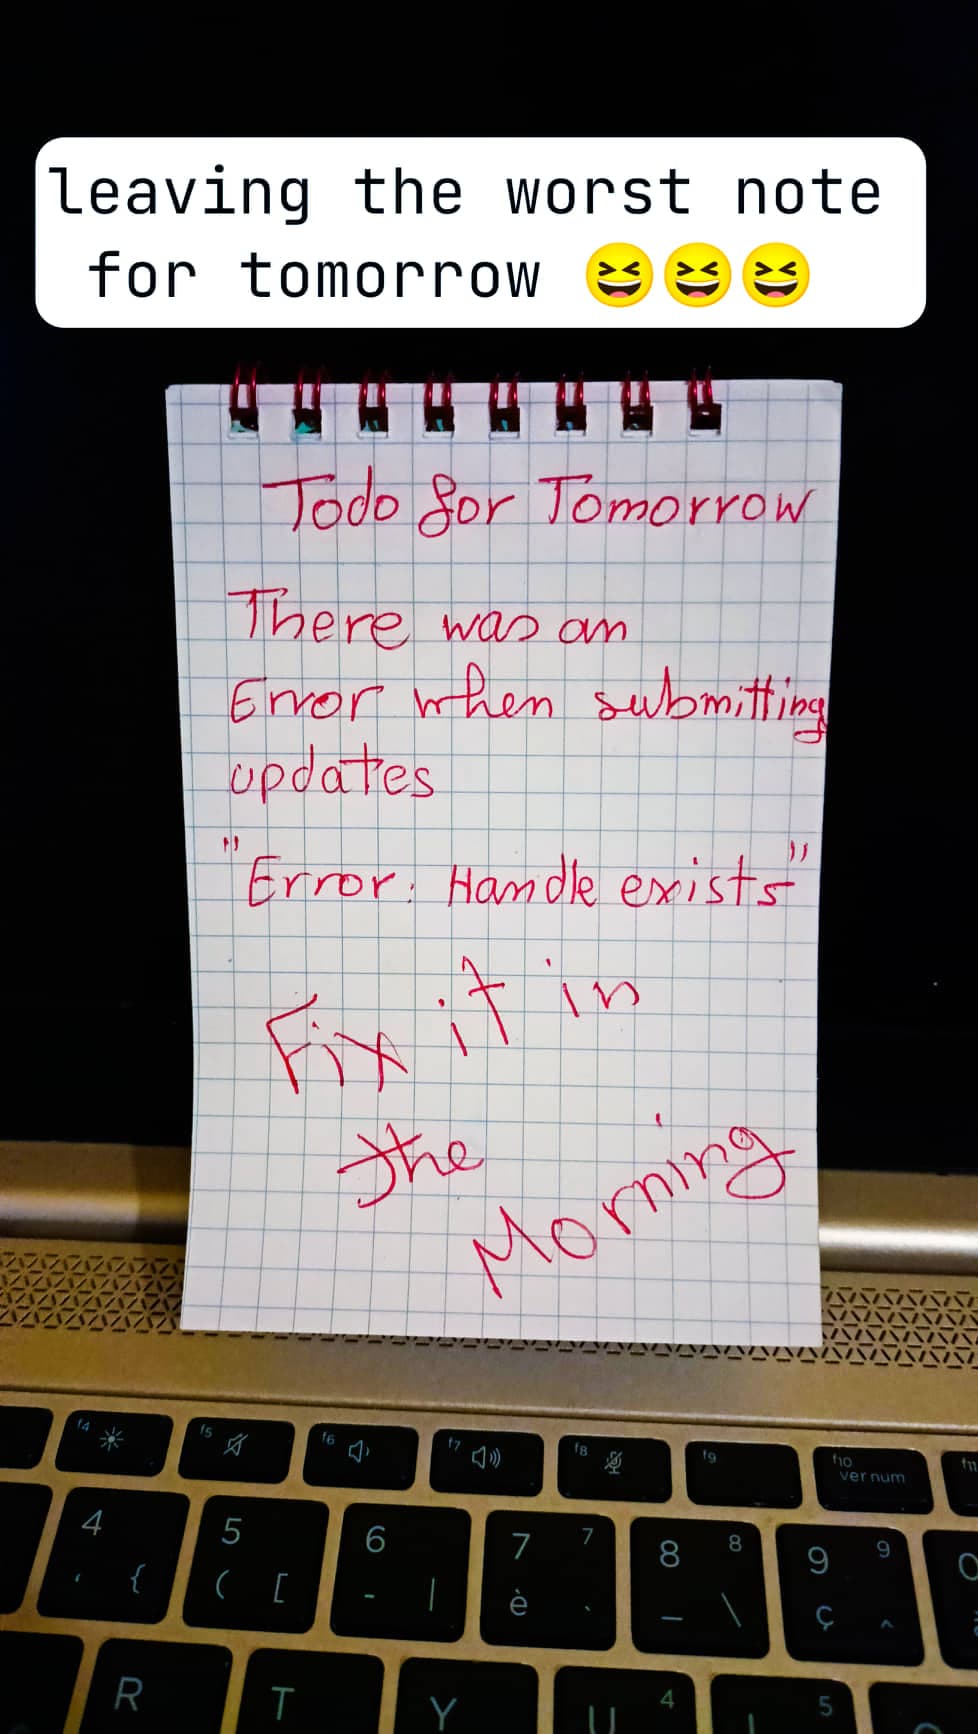 leaving the worst note
for tomorrow 😆😆😆
Todo for Tomorrow
There was an
Error when submitting
updates
"Error: Handle exists"
Fix it in
the
Morning
f4 f5 f6 f7 f8 f9 f10 f11
ver num
4 5 6 7 7 8 8 9 9 0
' { ( [ - | è ` _ \ ç ^
R T Y U 4 I 5